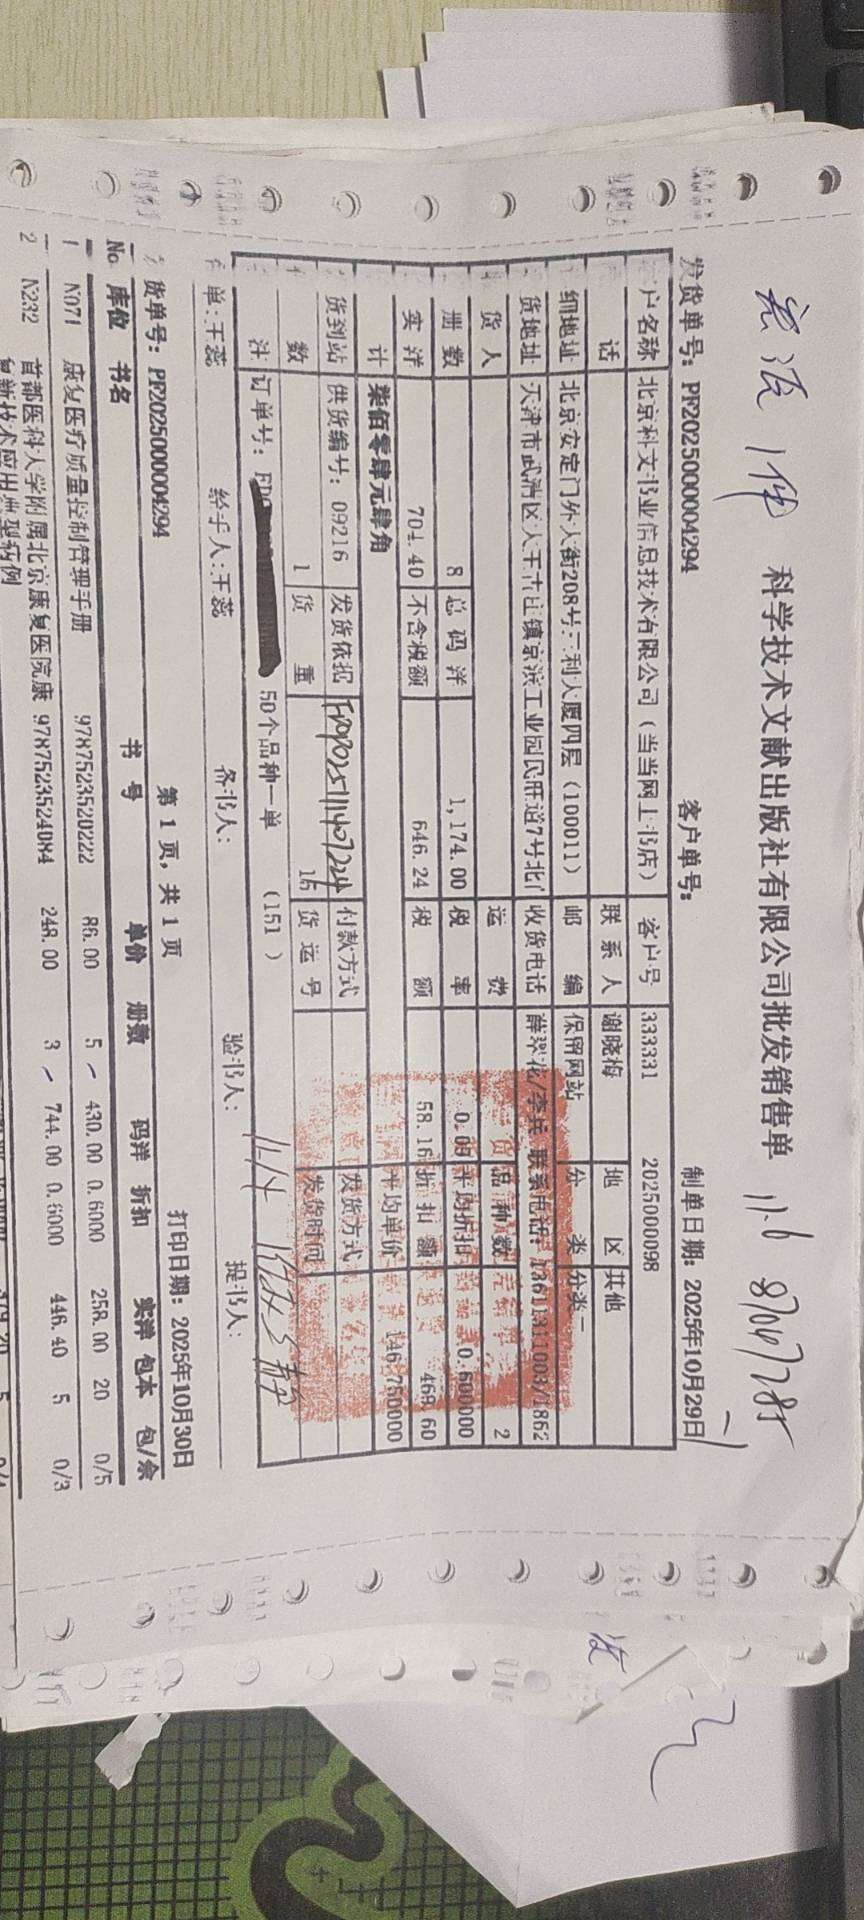 科学技术文献出版社有限公司批发销售单 11.6
发货单号: PF2025000004294 客户单号: 制单日期: 2025年10月29日
户名称 北京科文书业信息技术有限公司（当当网上书店） 客户号 333331 2025000098
话 联系人 谢晓梅 地区 其他
细地址 北京安定门外大街208号三利大厦四层 (100011) 邮编 保留网站 分类 分类一
货地址 天津市武清区大王古庄镇京滨工业园民旺道7号北门 收货电话 薛翠花/李兵 联系电话: 13611311003/1862
货人 运费 品种数 2
册数 8 总码洋 1,174.00 税率 0.09 平均折扣 0.600000
实洋 704.40 不含税额 646.24 税额 58.16 折扣额 469.60
计 柒佰零肆元肆角 平均单价 146.750000
货到站 供货编号: 09216 发货依据 付款方式 发货方式
数 1 货重 15 货运号 发货时间
注 订单号: 50个品种一单 (151 )
单:王蕊 经手人:王蕊 备书人: 验书人: 提书人:
11.14
货单号: PF2025000004294 第 1 页, 共 1 页 打印日期: 2025年10月30日
No 库位 书名 书号 单价 册数 码洋 折扣 实洋 包本 包/余
1 N071 康复医疗质量控制管理手册 9787523520222 86.00 5 430.00 0.6000 258.00 20 0/5
2 N232 首都医科大学附属北京康复医院康 9787523524084 248.00 3 744.00 0.6000 446.40 5 0/3
复新技术应用典型病例